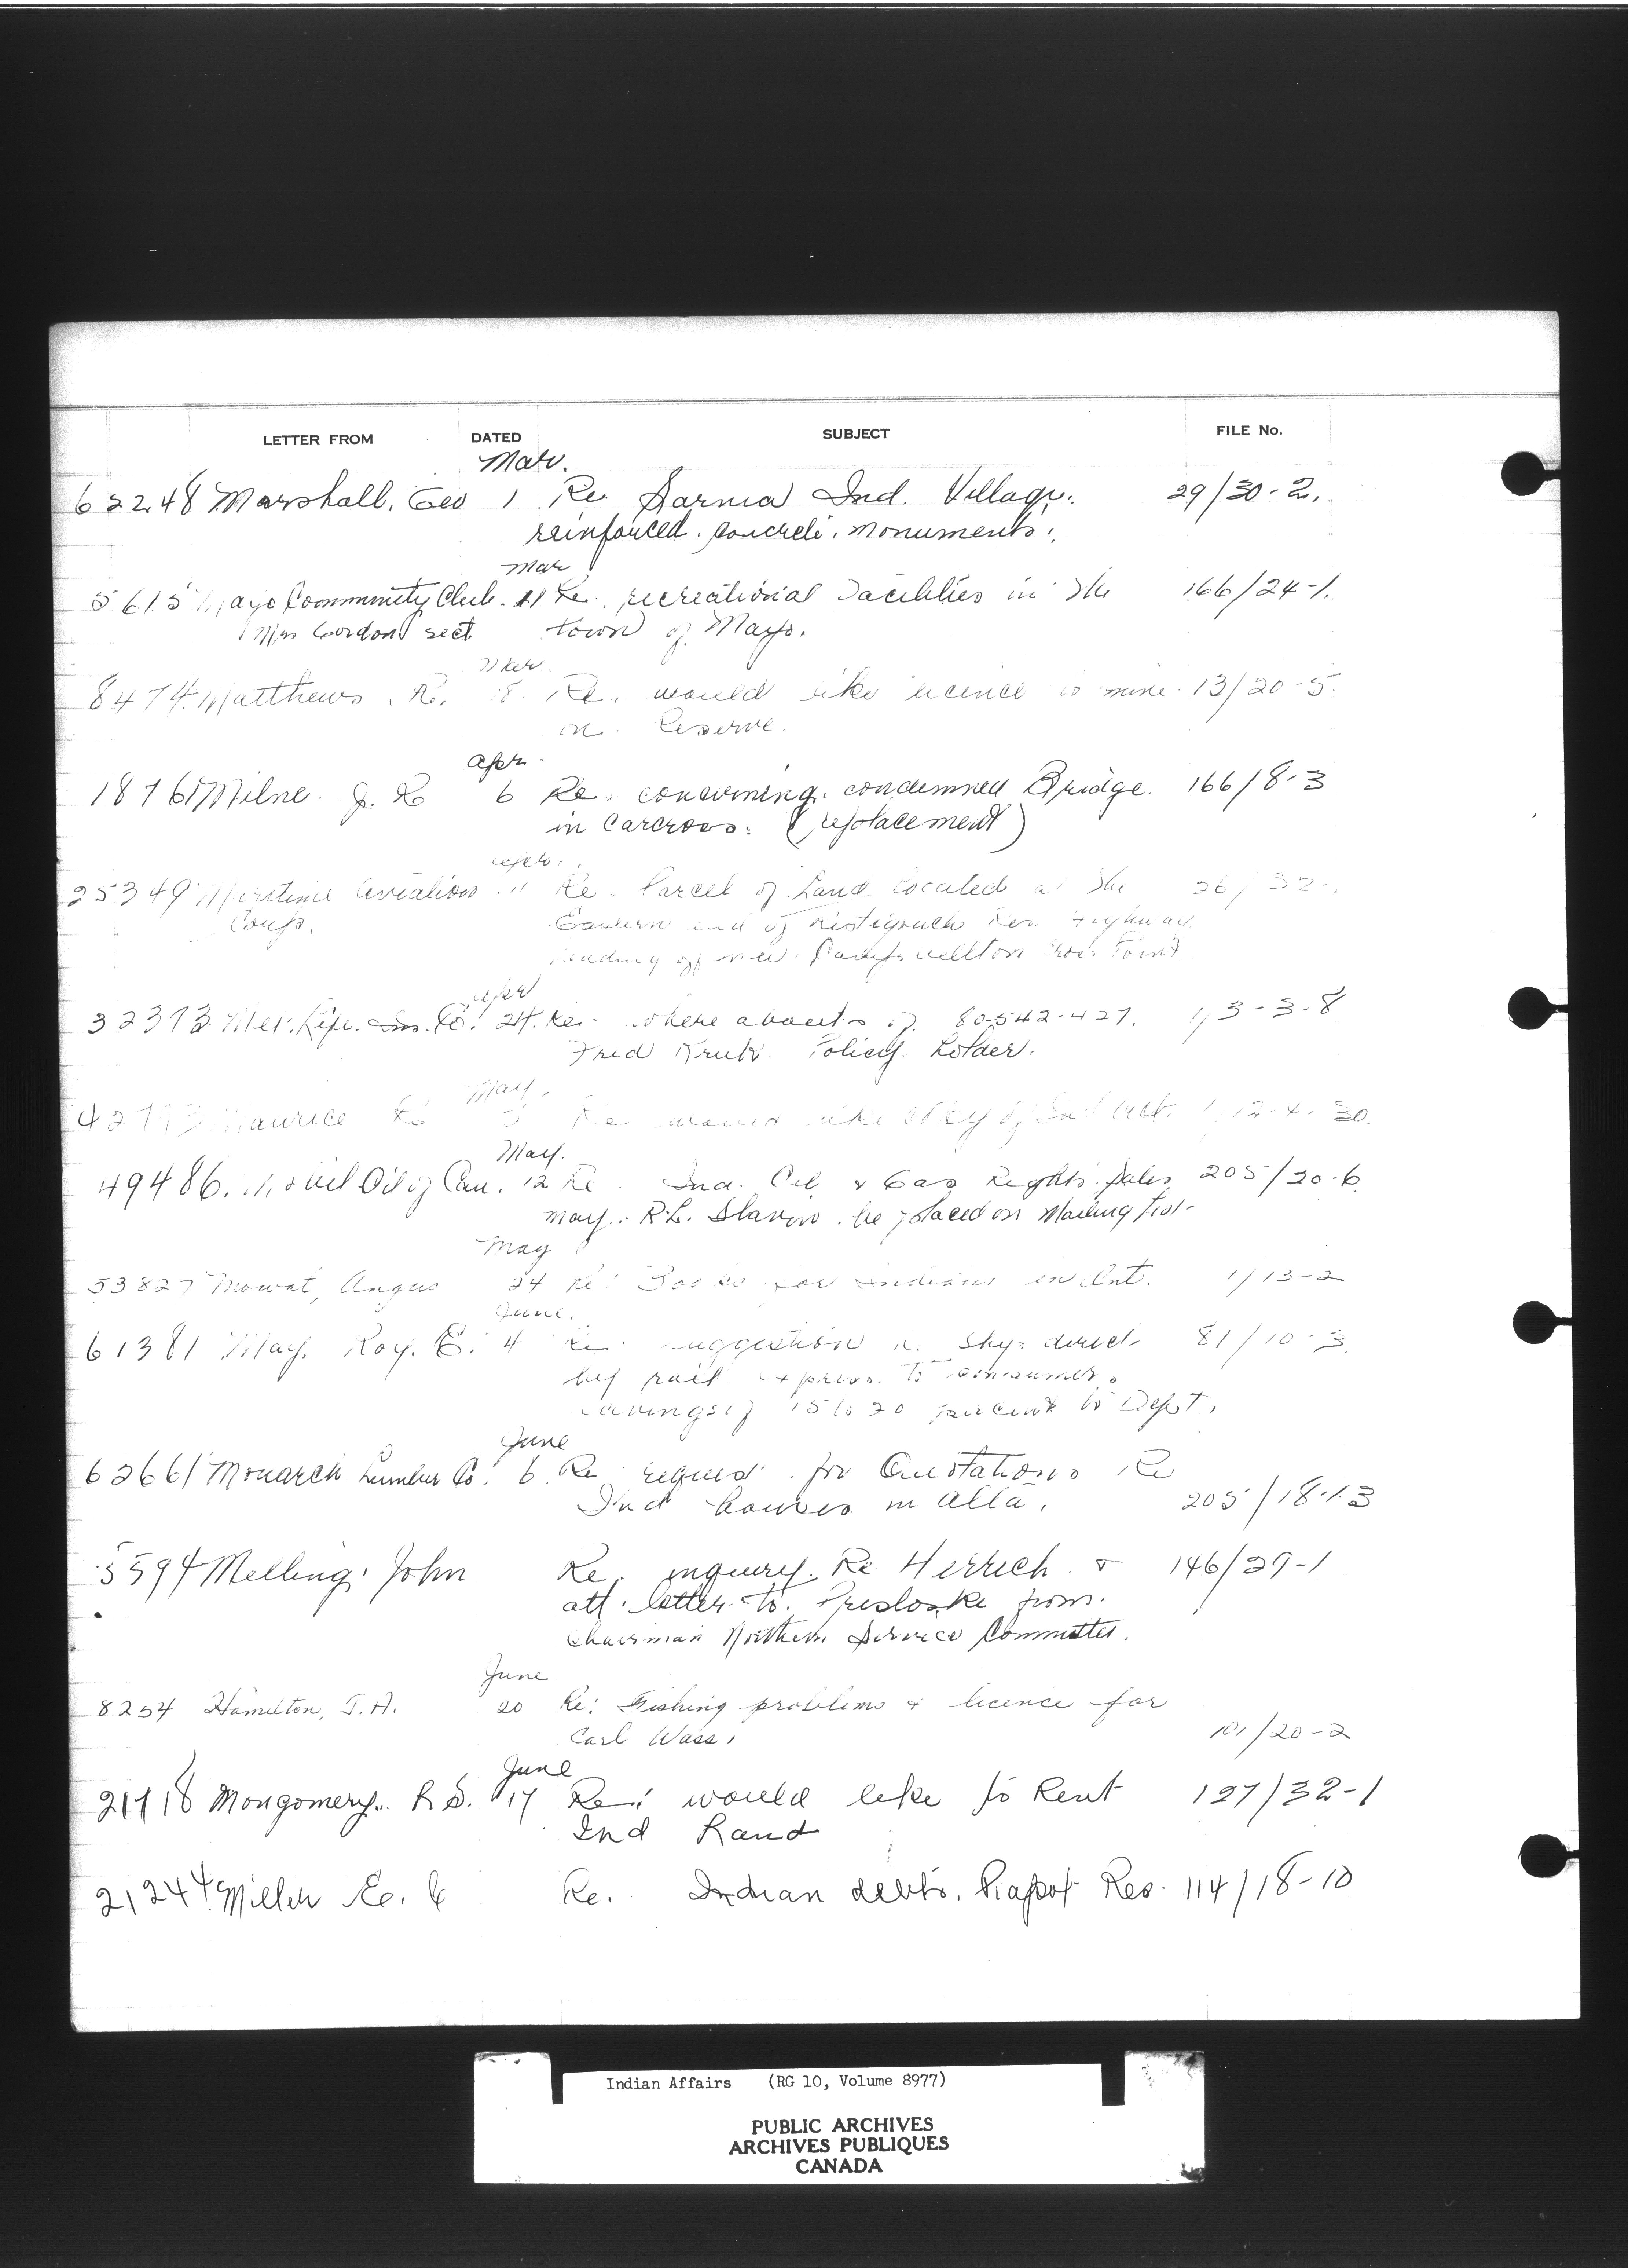 LETTER FROM DATED SUBJECT FILE No.
Mar.
62248 Marshall, Geo 1 Re Sarnia Ind. Village. 29/30-2.
reinforced concrete monuments.
Mar
5615 Mayo Community Club. 11 Re. recreational facilities in the 166/24-1.
Mrs Gordon sect. town of Mayo.
Mar
8474 Matthews, R. Re. would like licence to mine 13/20-5.
on Reserve.
Apr.
18761 Milne. J. R 6 Re. concerning condemned Bridge. 166/8-3
in Carcross. (replacement)
Apr.
25349 Maritime Aviation Re. Parcel of Land located at the
Corp. Eastern end of Restigouche Res. Highway
leading off new Campbellton Cross Point
Apr
32373 Met. Life. Ins. Co. 24. Re. where abouts of 80-542-427. 1/3-3-8
Fred Policy Holder.
May.
Maurice Re would like of Ind Act.
May.
49486. Mobil Oil of Can. 12 Re. Ind. Oil & Gas Rights Sales 205/30-6
may. R.L. Slavin be placed on Mailing list
May
53827 Mowat, Angus 24 Re: Books for Indians in Ont. 1/13-2
June.
61381 May. Roy. E. 4 Re. suggestion direct 81/10-3
by rail express to consumer.
savings of 15 to 20 percent to Dept.
June
62661 Monarch Lumber Co. 6. Re request for Quotations Re
Ind houses in Alta. 205/18-13
5594 Melling, John Re. inquiry Re Herrich & 146/29-1
att. letter to from.
Chairman Northern Service Committee.
June
8254 Hamilton, J.A. 20 Re: Fishing problems & licence for
Carl Wass. 101/20-2
June
21118 Mongomery. R S. 17 Re: would like to Rent 127/32-1
Ind Land
21244 Miller E. C Re. Indian debts. Piapot Res. 114/18-10
Indian Affairs (RG 10, Volume 8977)
PUBLIC ARCHIVES
ARCHIVES PUBLIQUES
CANADA